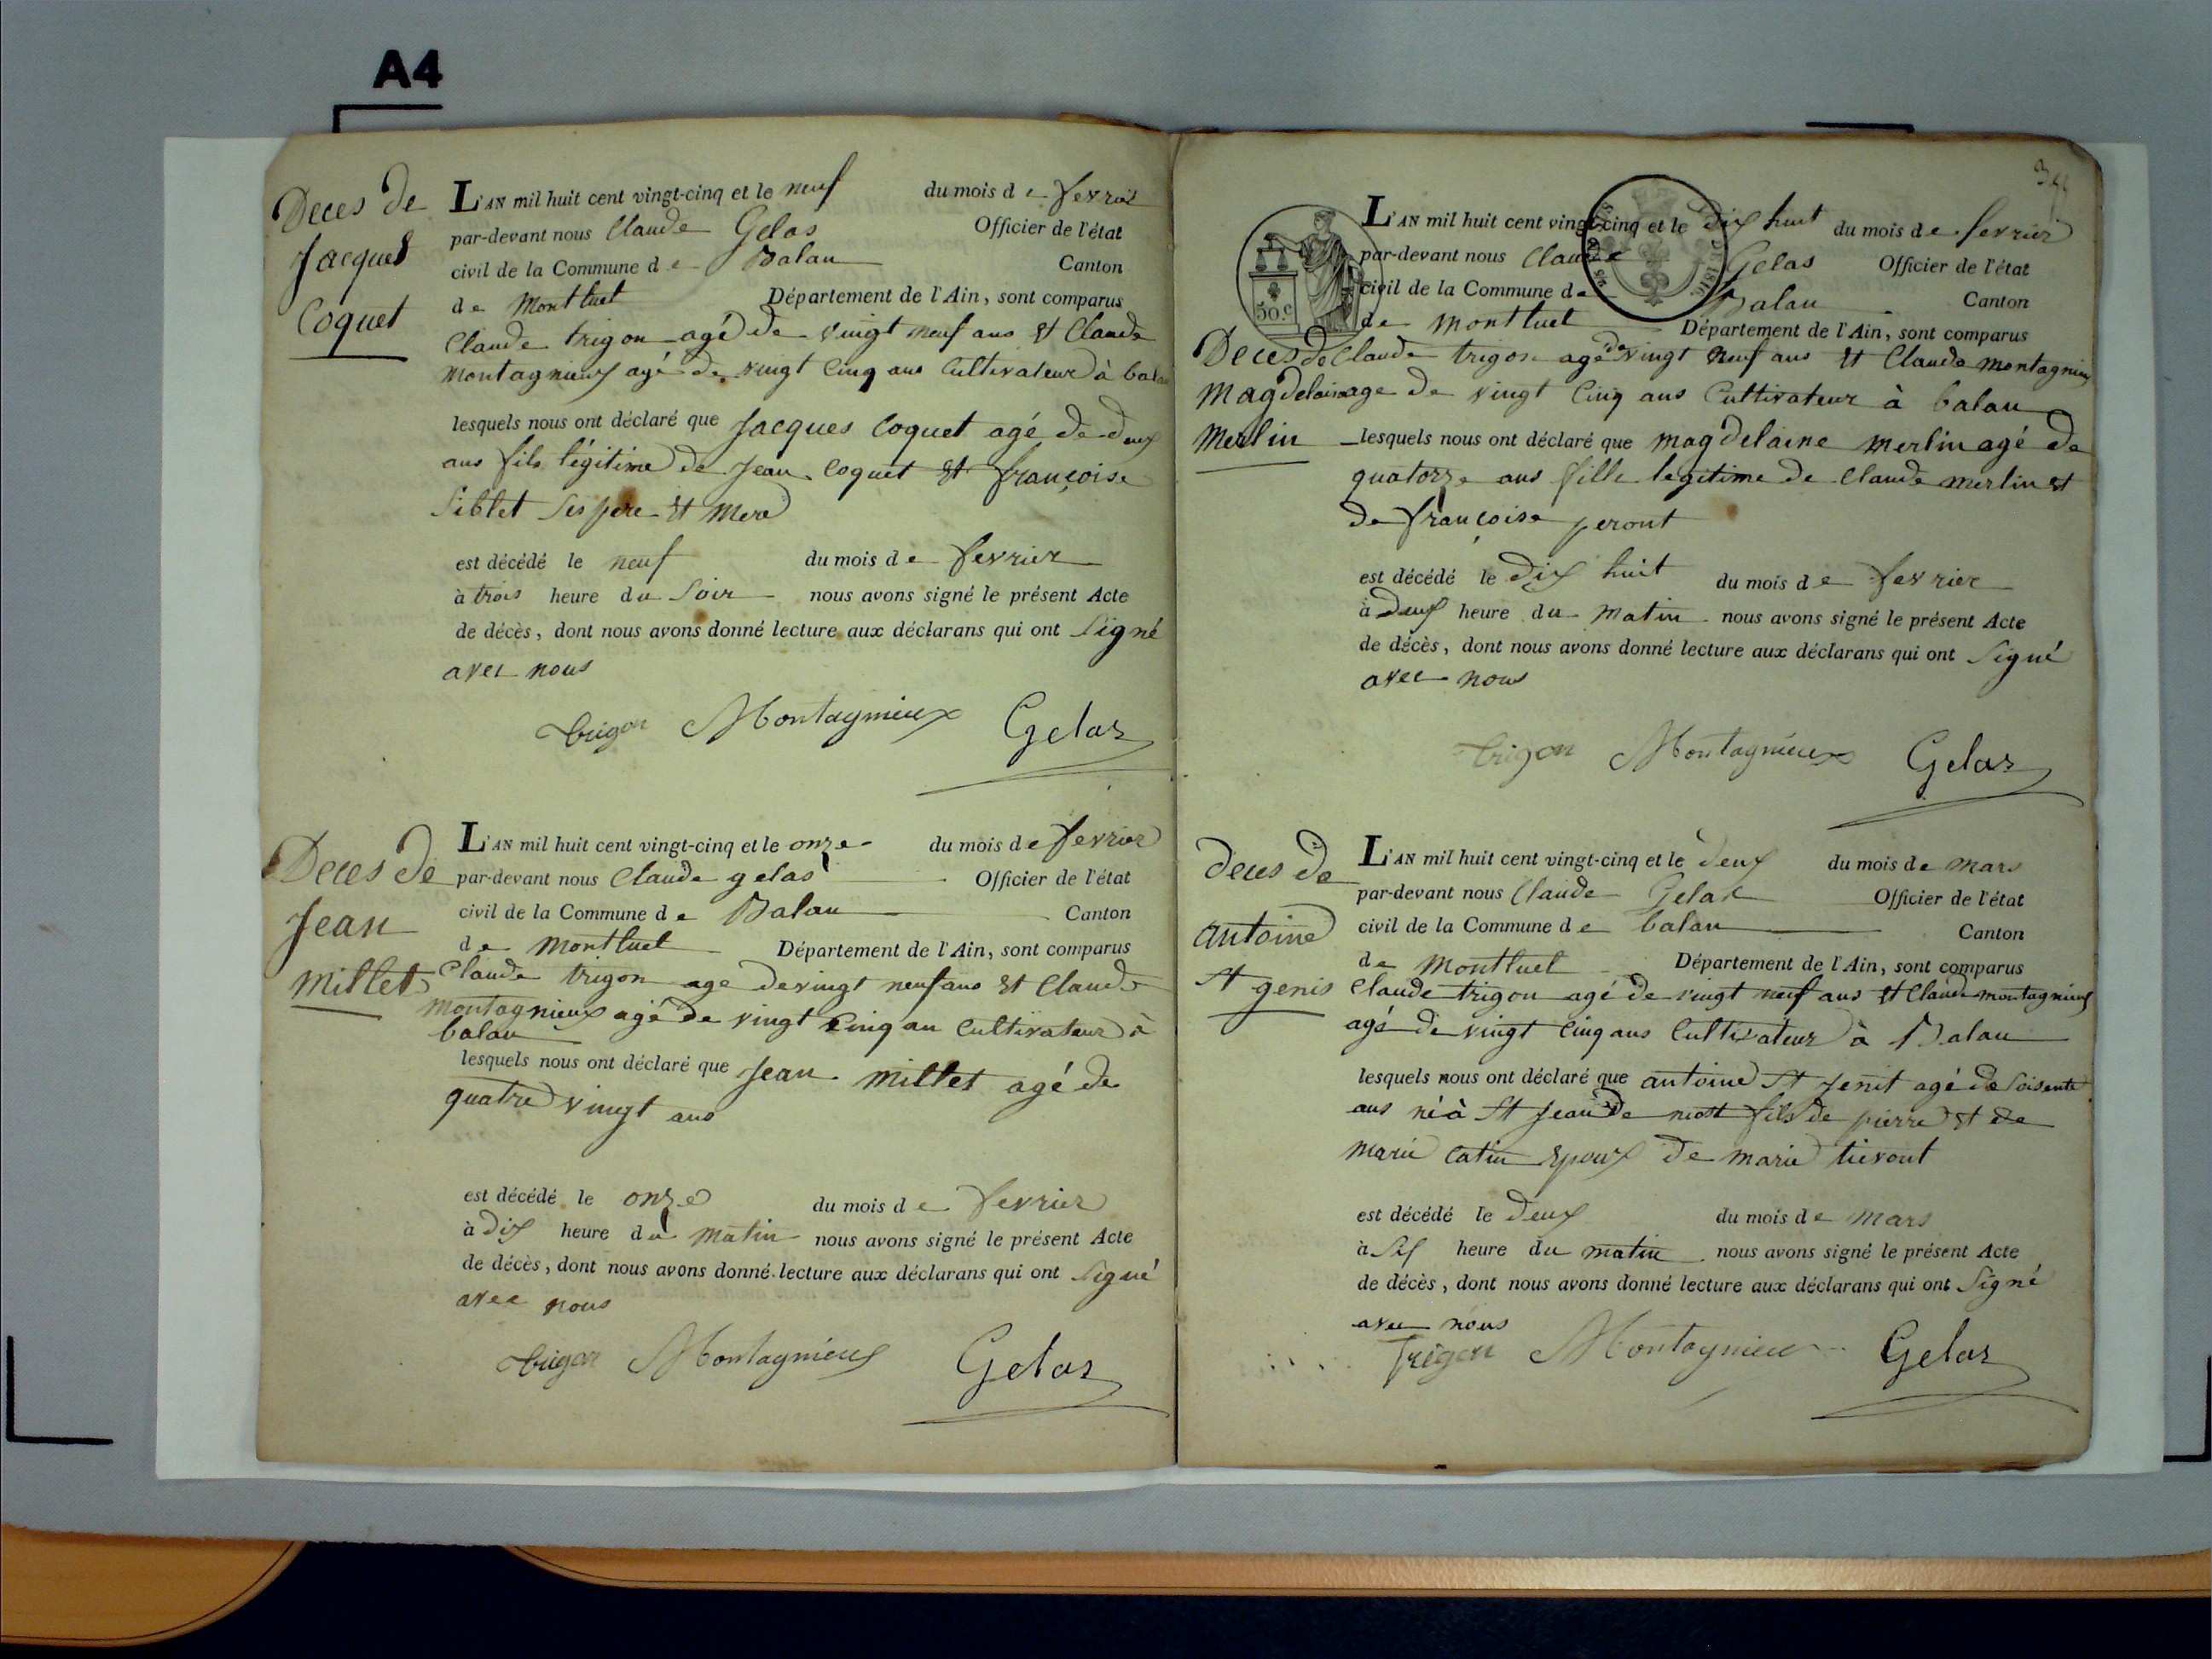 A4
Deces de
Jacques
Coquet
L'AN mil huit cent vingt-cinq et le neuf du mois de fevrier
par-devant nous Claude Gelas Officier de l'état
civil de la Commune de Balan Canton
de Montluel Département de l'Ain, sont comparus
Claude trigon agé de vingt neuf ans et Claude
montagnieux agé de vingt cinq ans Cultivateur à balan
lesquels nous ont déclaré que Jacques Coquet agé de deux
ans fils légitime de Jean Coquet et françoise
Siblet ses pere et mere
est décédé le neuf du mois de fevrier
à trois heure du Soir nous avons signé le présent Acte
de décès, dont nous avons donné lecture aux déclarans qui ont Signé
avec nous
trigon Montagnieux Gelas
Deces de
Jean
Millet
L'AN mil huit cent vingt-cinq et le onze du mois de fevrier
par-devant nous Claude gelas Officier de l'état
civil de la Commune de Balan Canton
de Montluel Département de l'Ain, sont comparus
Claude trigon age de vingt neuf ans et Claude
montagnieux agé de vingt cinq an Cultivateur à
balan
lesquels nous ont déclaré que Jean Millet agé de
quatre vingt ans
est décédé le onze du mois de fevrier
à dix heure du matin nous avons signé le présent Acte
de décès, dont nous avons donné lecture aux déclarans qui ont Signé
avec nous
trigon Montagnieux Gelas
50.c
Deces de
Magdelaine
Merlin
L'AN mil huit cent vingt-cinq et le dix huit du mois de fevrier
par-devant nous Claude Gelas Officier de l'état
civil de la Commune de Balan Canton
de montluel Département de l'Ain, sont comparus
Claude trigon agé de vingt neuf ans et Claude montagnieux
age de vingt cinq ans Cultivateur à balan
lesquels nous ont déclaré que magdelaine merlin agé de
quatorze ans fille legitime de Claude merlin et
de françoise peront
est décédé le dix huit du mois de fevrier
à deux heure du matin nous avons signé le présent Acte
de décès, dont nous avons donné lecture aux déclarans qui ont Signé
avec nous
trigon Montagnieux Gelas
deces de
antoine
st genis
L'AN mil huit cent vingt-cinq et le deux du mois de mars
par-devant nous Claude Gelas Officier de l'état
civil de la Commune de balan Canton
de Montluel Département de l'Ain, sont comparus
Claude trigon agé de vingt neuf ans et Claude montagnieux
agé de vingt cinq ans Cultivateur à Balan
lesquels nous ont déclaré que antoine st jenit agé de soisente
ans né à st Jean de niost fils de pierre et de
marie catin epoux de marie tievout
est décédé le deux du mois de mars
à six heure du matin nous avons signé le présent Acte
de décès, dont nous avons donné lecture aux déclarans qui ont Signé
avec nous
Trigon Montagnieux Gelas